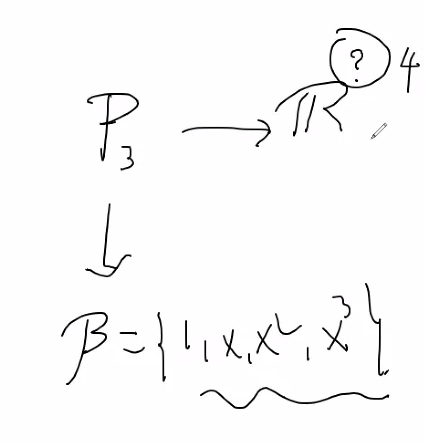 P₃ → ℝ^? 4
↓
β = {1, x, x², x³}